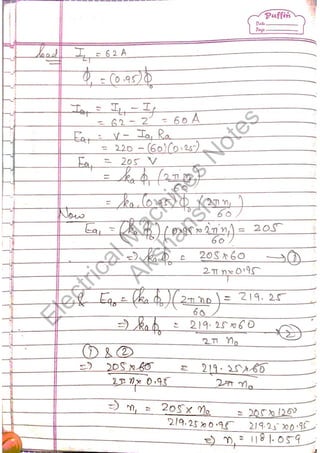 Puffin
Date
Page
Load I_L1 = 62 A
φ_1 = (0.95) φ_0
I_a1 = I_L1 - I_f
= 62 - 2 = 60 A
E_a1 = V - I_a1 R_a
= 220 - (60)(0.25)
E_a1 = 205 V
= k_a φ_1 (2π n_1 / 60)
= k_a (0.95) φ_0 (2π n_1 / 60)
Now
E_a1 = (k_a φ_0) (0.95 × 2π n_1 / 60) = 205
⇒ k_a φ_0 = 205 × 60 / 2π n_1 × 0.95 → ①
& E_a0 = (k_a φ_0) (2π n_0 / 60) = 219.25
⇒ k_a φ_0 = 219.25 × 60 / 2π n_0 → ②
① & ②
⇒ 205 × 60 / 2π n_1 × 0.95 = 219.25 × 60 / 2π n_0
⇒ n_1 = 205 × n_0 / 219.25 × 0.95 = 205 × 1200 / 219.25 × 0.95
⇒ n_1 = 1181.059
Electrical Machines Notes
Akshansh